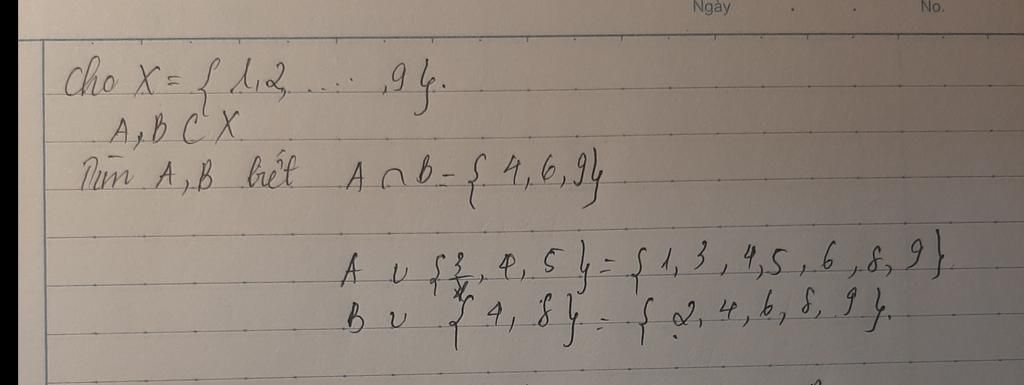 Ngày . . No.
Cho X = { 1,2, ... ,9 }.
A, B ⊂ X
Tìm A, B biết A ∩ B = { 4, 6, 9 }
A ∪ { 3, 4, 5 } = { 1, 3, 4, 5, 6, 8, 9 }
B ∪ { 4, 8 } = { 2, 4, 6, 8, 9 }.